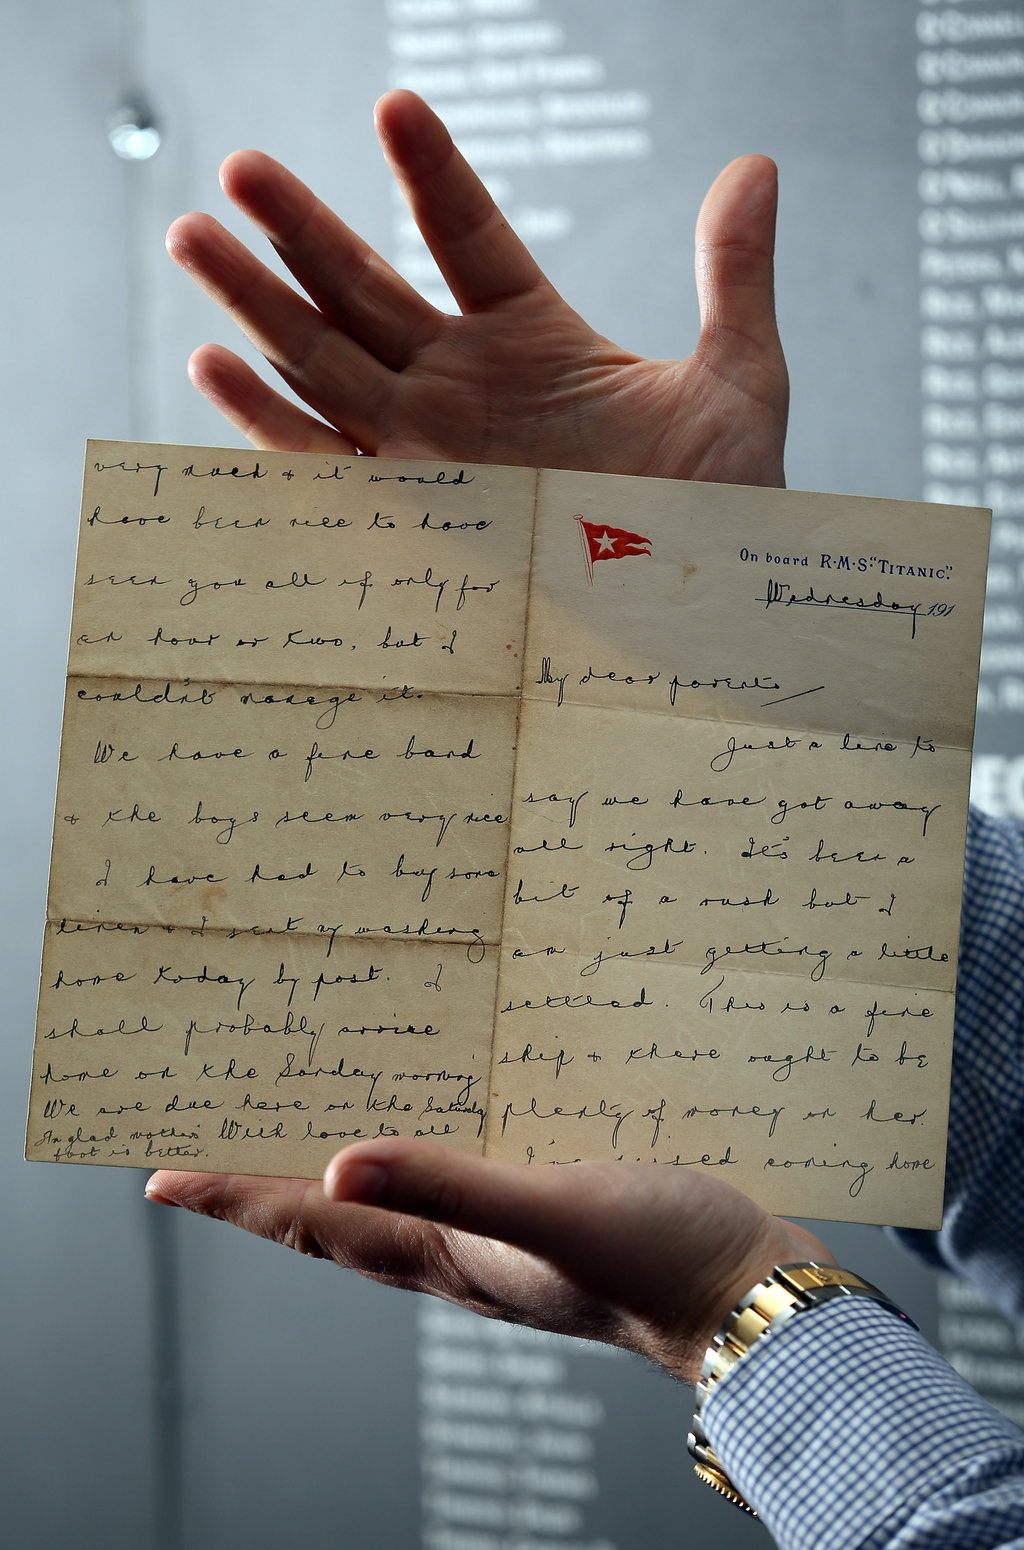 On board R·M·S "TITANIC".
Wednesday 191
My dear parents
Just a line to
say we have got away
all right. It's been a
bit of a rush but I
am just getting a little
settled. This is a fine
ship & there ought to be
plenty of money on her.
I've missed coming home
very much & it would
have been nice to have
seen you all if only for
an hour or two, but I
couldn't manage it.
We have a fine band
& the boys seem very nice
I have had to buy some
linen & I sent my washing
home today by post. I
shall probably arrive
home on the Sunday morning
We are due here on the Saturday
Am glad mother's With love to all
foot is better.